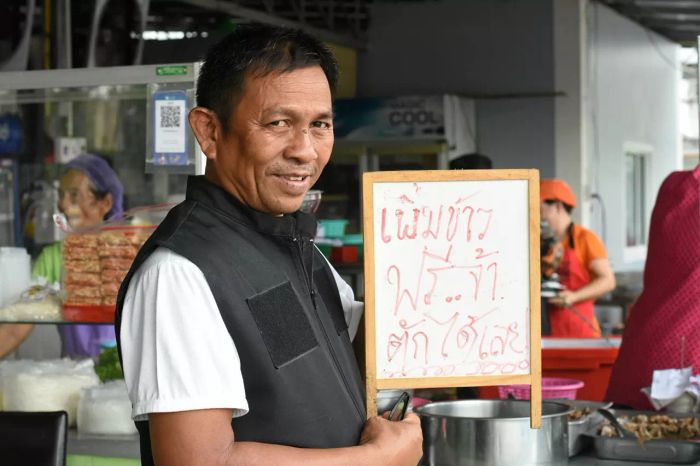 MAGIC
COOL
เพิ่มข้าว
ฟรี..จ้า
ตักได้เลย